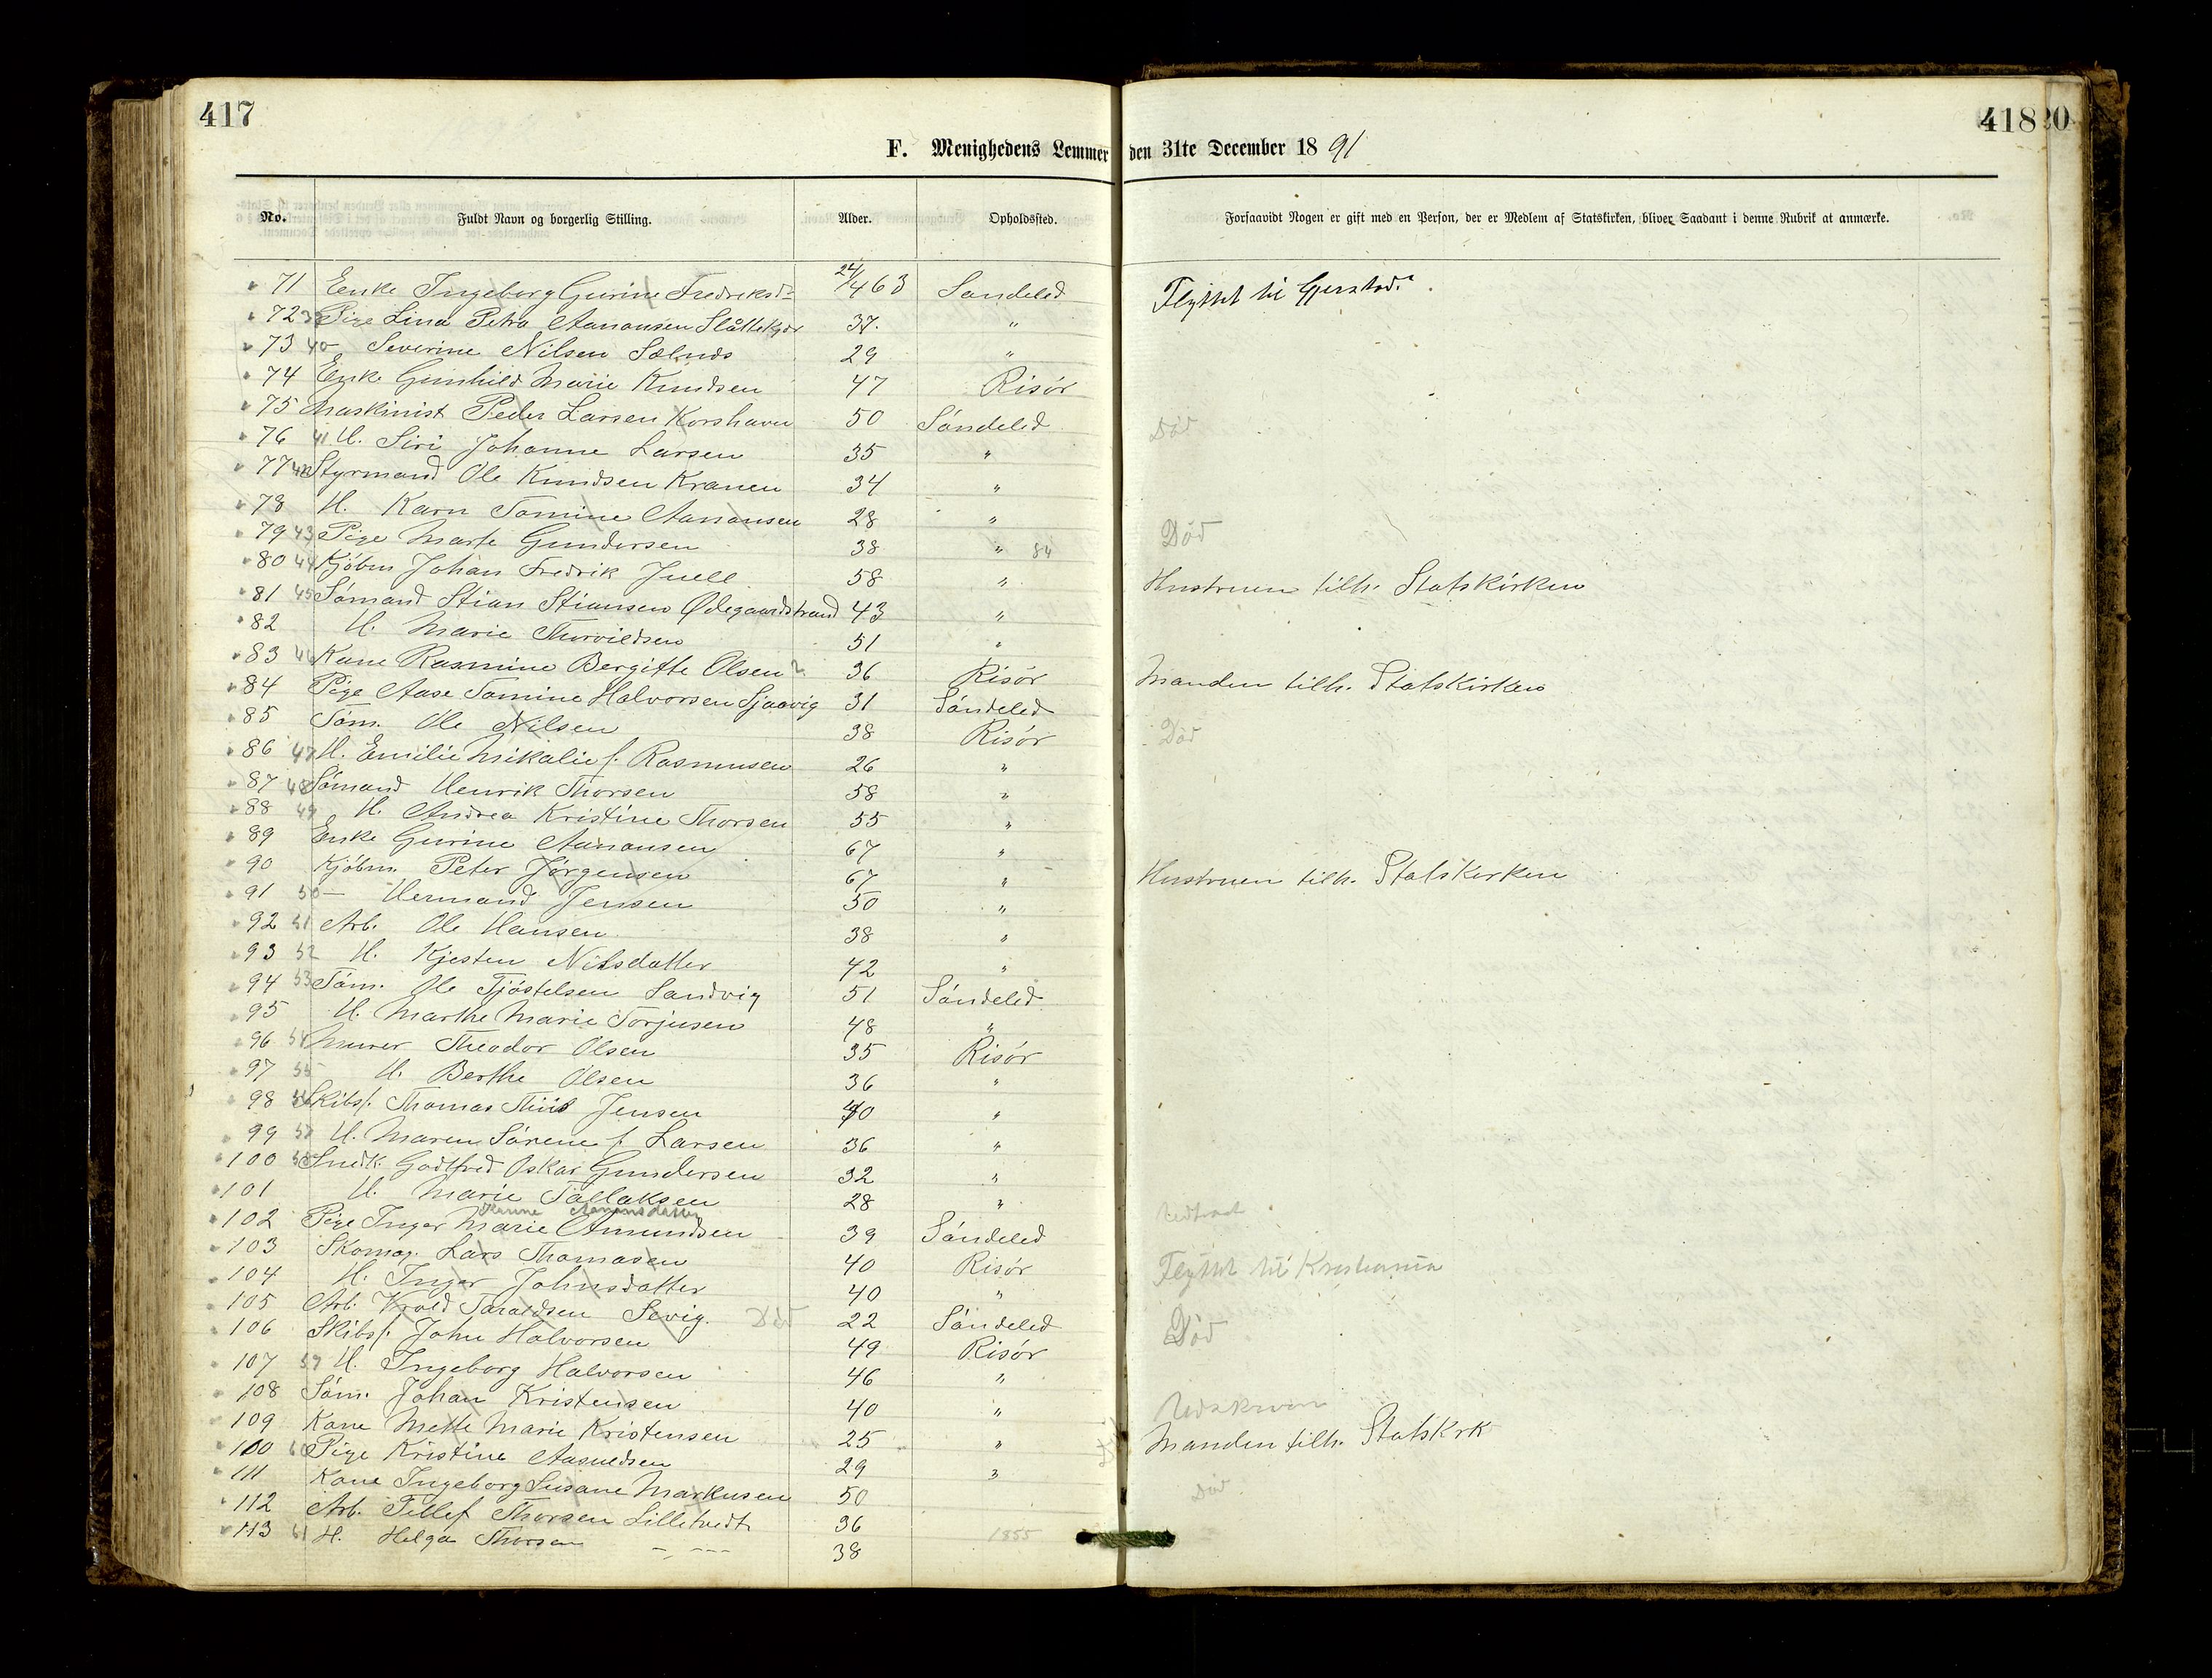 417
41820
F. Menighedens Lemmer den 31te December 1891
No. Fuldt Navn og borgerlig Stilling. Alder. Opholdssted. Forsaavidt Nogen er gift med en Person, der er Medlem af Statskirken, bliver Saadant i denne Rubrik at anmærke.
71 Enke Ingeborg Gurine Fredriksd= 24/4 63 Sondeled Flyttet til Gjerstad.
72 Pige Lina Petra Aanonsen 37. "
73 40 – Severine Nilsen 29 "
74 Enke Gunhild Marie Knudsen 47 Risör
75 Maskinist Peder Larsen Korshavn 50 Söndeled Död
76 41 H. Siri Johanne Larsen 35 "
77 42 Styrmand Ole Knudsen Kranen 34 "
78 H. Karn Tomine Aanonsen 28 " Död
79 43 Pige Marte Gundersen 38 " 84
80 44 Kjöbm Johan Fredrik Juell 58 " Hustruen tilh. Statskirken
81 45 Sömand Stian Stiansen Ødegaardstrand 43 "
82 H. Marie Thorvildsen 51 "
83 46 Kone Rasmine Bergitte Olsen 36 Risör Manden tilh. Statskirken
84 Pige Aase Tomine Halvorsen Sjaavig 31 Söndeled
85 Töm. Ole Nilsen 38 Risör Död
86 47 H. Emilie Mikalie f. Rasmussen 26 "
87 48 Sömand Henrik Thorsen 58 "
88 49 H. Andrea Kristine Thorsen 55 "
89 Enke Gurine Aanonsen 67 "
90 Kjöbm. Peter Jørgensen 67 " Hustruen tilh. Statskirken
91 50 – Hermand Jensen 50 "
92 51 Arb. Ole Hansen 38 "
93 52 H. Kjesten Nilsdatter 42 "
94 53 Töm. Ole Tjöstelsen Sandvig 51 Söndeled
95 H. Marthe Marie Torjusen 48 "
96 54 Murer Theodor Olsen 35 Risör
97 55 H. Berthe Olsen 36 "
98 56 Skibsf. Thomas Thiis Jensen 40 "
99 57 H. Maren Sörene f. Larsen 36 "
100 58 Snedk. Godtfred Oskar Gundersen 32 "
101 H. Marie Tallaksen 28 "
Hanne Aanonsdatter
102 Pige Inger Marie Amundsen 39 Söndeled Udtraat
103 Skomag. Lars Thomasen 40 Risör Flyttet til Kristiania
104 H. Inger Johnsdatter 40 "
105 Arb. Taraldsen Sevig. Död 22 Söndeled Död
106 Skibsf. John Halvorsen 49 Risör
107 59 H. Ingeborg Halvorsen 46 "
108 Söm. Johan Kristensen 40 " Udskreven
109 Kone Mette Marie Kristensen 25 " Manden tilh. Statskrk
100 60 Pige Kristine Aasueldsen 29 "
111 Kone Ingeborg Susane Markusen 50 Död
112 Arb. Tellef Thorsen Lilletvedt 36
113 61 H. Helga Thorsen – – – 38 1855